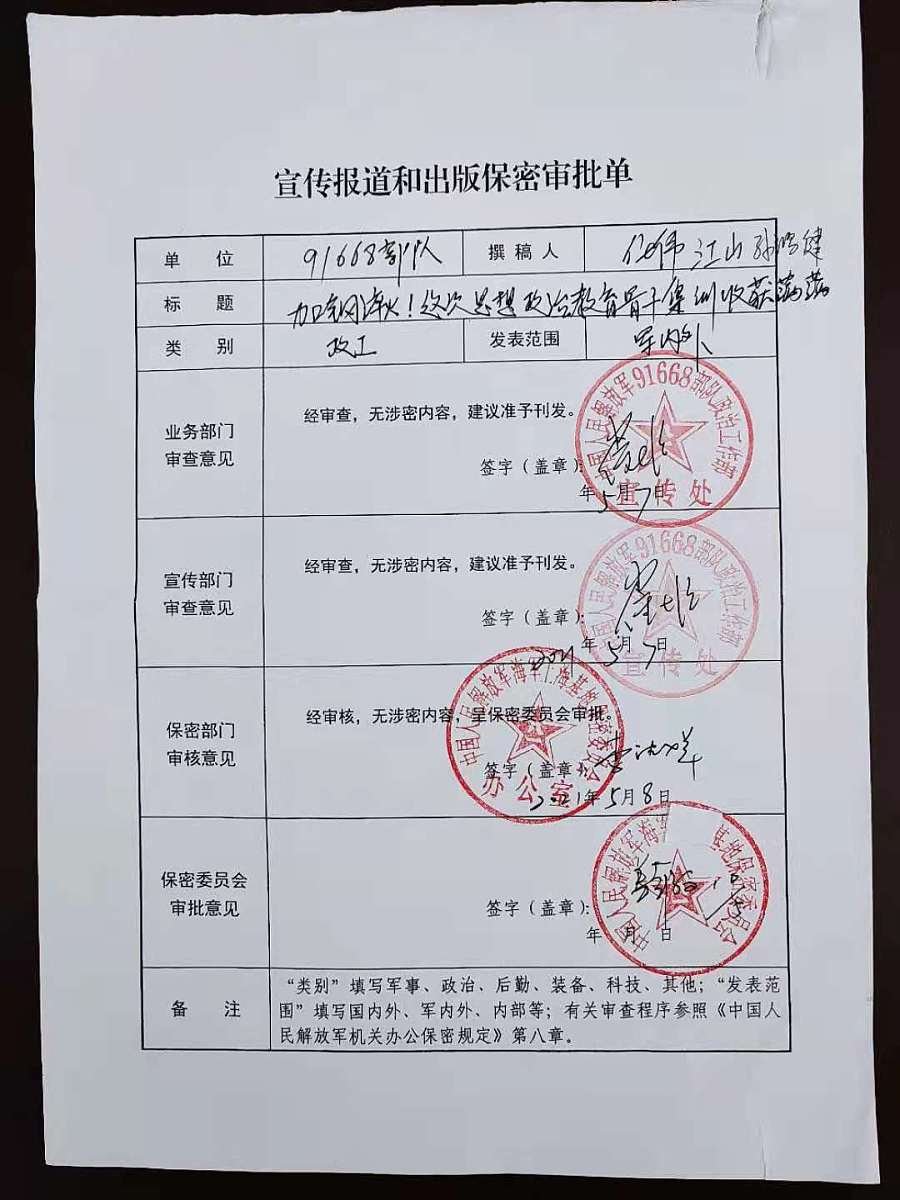 宣传报道和出版保密审批单
单 位 91668部队 撰稿人 江山
标 题 加钢淬火！这次思想政治教育骨干集训收获满满
类 别 政工 发表范围 军内外
业务部门
审查意见
经审查，无涉密内容，建议准予刊发。
签字（盖章）：
年5月7日
中国人民解放军91668部队政治工作部
宣传处
宣传部门
审查意见
经审查，无涉密内容，建议准予刊发。
签字（盖章）：
2021年5月7日
中国人民解放军91668部队政治工作部
宣传处
保密部门
审核意见
经审核，无涉密内容，呈保密委员会审批。
签字（盖章）：
2021年5月8日
中国人民解放军海军上海基地保密委员会
办公室
保密委员会
审批意见
签字（盖章）：
年 月 日
中国人民解放军海军 基地保密委员会
备 注
“类别”填写军事、政治、后勤、装备、科技、其他；“发表范
围”填写国内外、军内外、内部等；有关审查程序参照《中国人
民解放军机关办公保密规定》第八章。